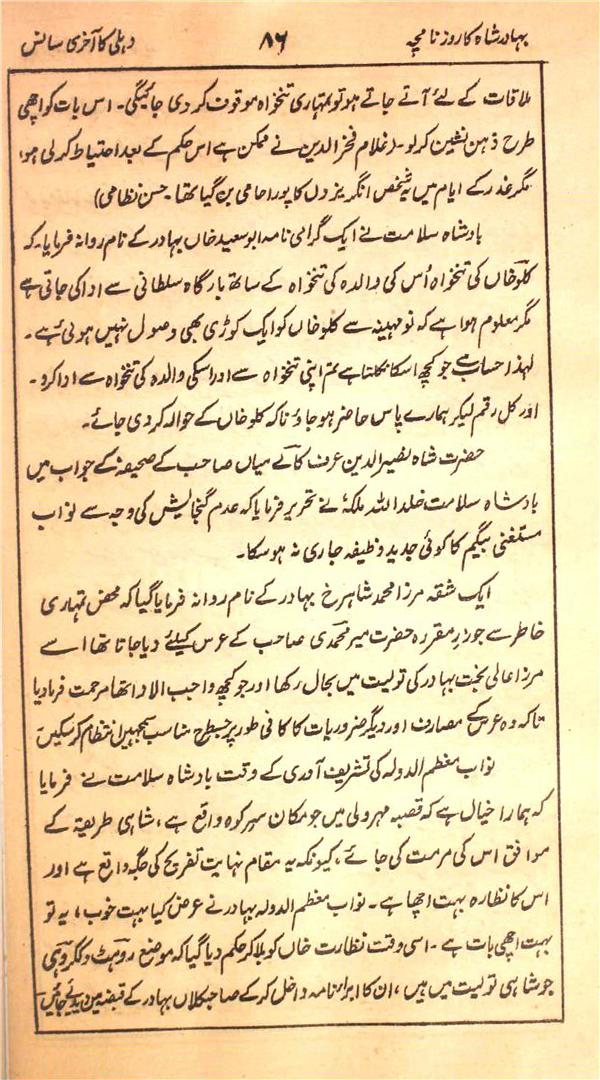 بہادر شاہ کا روزنامچہ ۸۶ دہلی کا آخری سانس
ملاقات کے لئے آتے جاتے ہو تو تمہاری تنخواہ موقوف کر دی جائیگی۔ اس بات کو اچھی
طرح ذہن نشین کر لو۔ (غلام فخر الدین نے ممکن ہے اس حکم کے بعد احتیاط کر لی ہو،
مگر غدر کے ایام میں یہ شخص انگریزوں کا پورا حامی بن گیا تھا۔ حسن نظامی)
بادشاہ سلامت نے ایک گرامی نامہ ابو سعید خاں بہادر کے نام روانہ فرمایا۔ کہ
کلو خاں کی تنخواہ اُس کی والدہ کی تنخواہ کے ساتھ بارگاہ سلطانی سے ادا کی جاتی ہے
مگر معلوم ہوا ہے کہ نو مہینہ سے کلو خاں کو ایک کوڑی بھی وصول نہیں ہوئی ہے۔
لہذا حساب سے جو کچھ اسکا نکلتا ہے تم اپنی تنخواہ سے اور اسکی والدہ کی تنخواہ سے ادا کرو۔
اور کل رقم لیکر ہمارے پاس حاضر ہو جاؤ تاکہ کلو خاں کے حوالہ کر دی جائے۔
حضرت شاہ نصیر الدین عرف کالے میاں صاحب کے صحیفہ کے جواب میں
بادشاہ سلامت خلد اللہ ملکہٗ نے تحریر فرمایا کہ عدم گنجائش کی وجہ سے نواب
مستغنی بیگم کا کوئی جدید وظیفہ جاری نہ ہو سکا۔
ایک شقہ مرزا محمد شاہرخ بہادر کے نام روانہ فرمایا گیا کہ محض تمہاری
خاطر سے جو زرِ مقررہ حضرت میر محمدی صاحب کے عرس کیلئے دیا جاتا تھا اسے
مرزا عالی بخت بہادر کی تولیت میں بحال رکھا اور جو کچھ واجب الادا تھا مرحمت فرما دیا
تاکہ وہ عرس کے مصارف اور دیگر ضروریات کا کافی طور پر جسطرح مناسب سمجھیں انتظام کر سکیں
نواب معظم الدولہ کی تشریف آوری کے وقت بادشاہ سلامت نے فرمایا
کہ ہمارا خیال ہے کہ قصبہ مہرولی میں جو مکان سرکوہ واقع ہے، شاہی طریقہ کے
موافق اس کی مرمت کی جائے، کیونکہ یہ مقام نہایت تفریح کی جگہ واقع ہے اور
اس کا نظارہ بہت اچھا ہے۔ نواب معظم الدولہ بہادر نے عرض کیا بہت خوب، یہ تو
بہت اچھی بات ہے۔ اسی وقت نظارت خاں کو بلا کر حکم دیا گیا کہ موضع
جو شاہی تولیت میں ہیں، ان کا اجارہ نامہ داخل کر کے صاحب کلاں بہادر کے قبضہ میں دیدئے جائیں